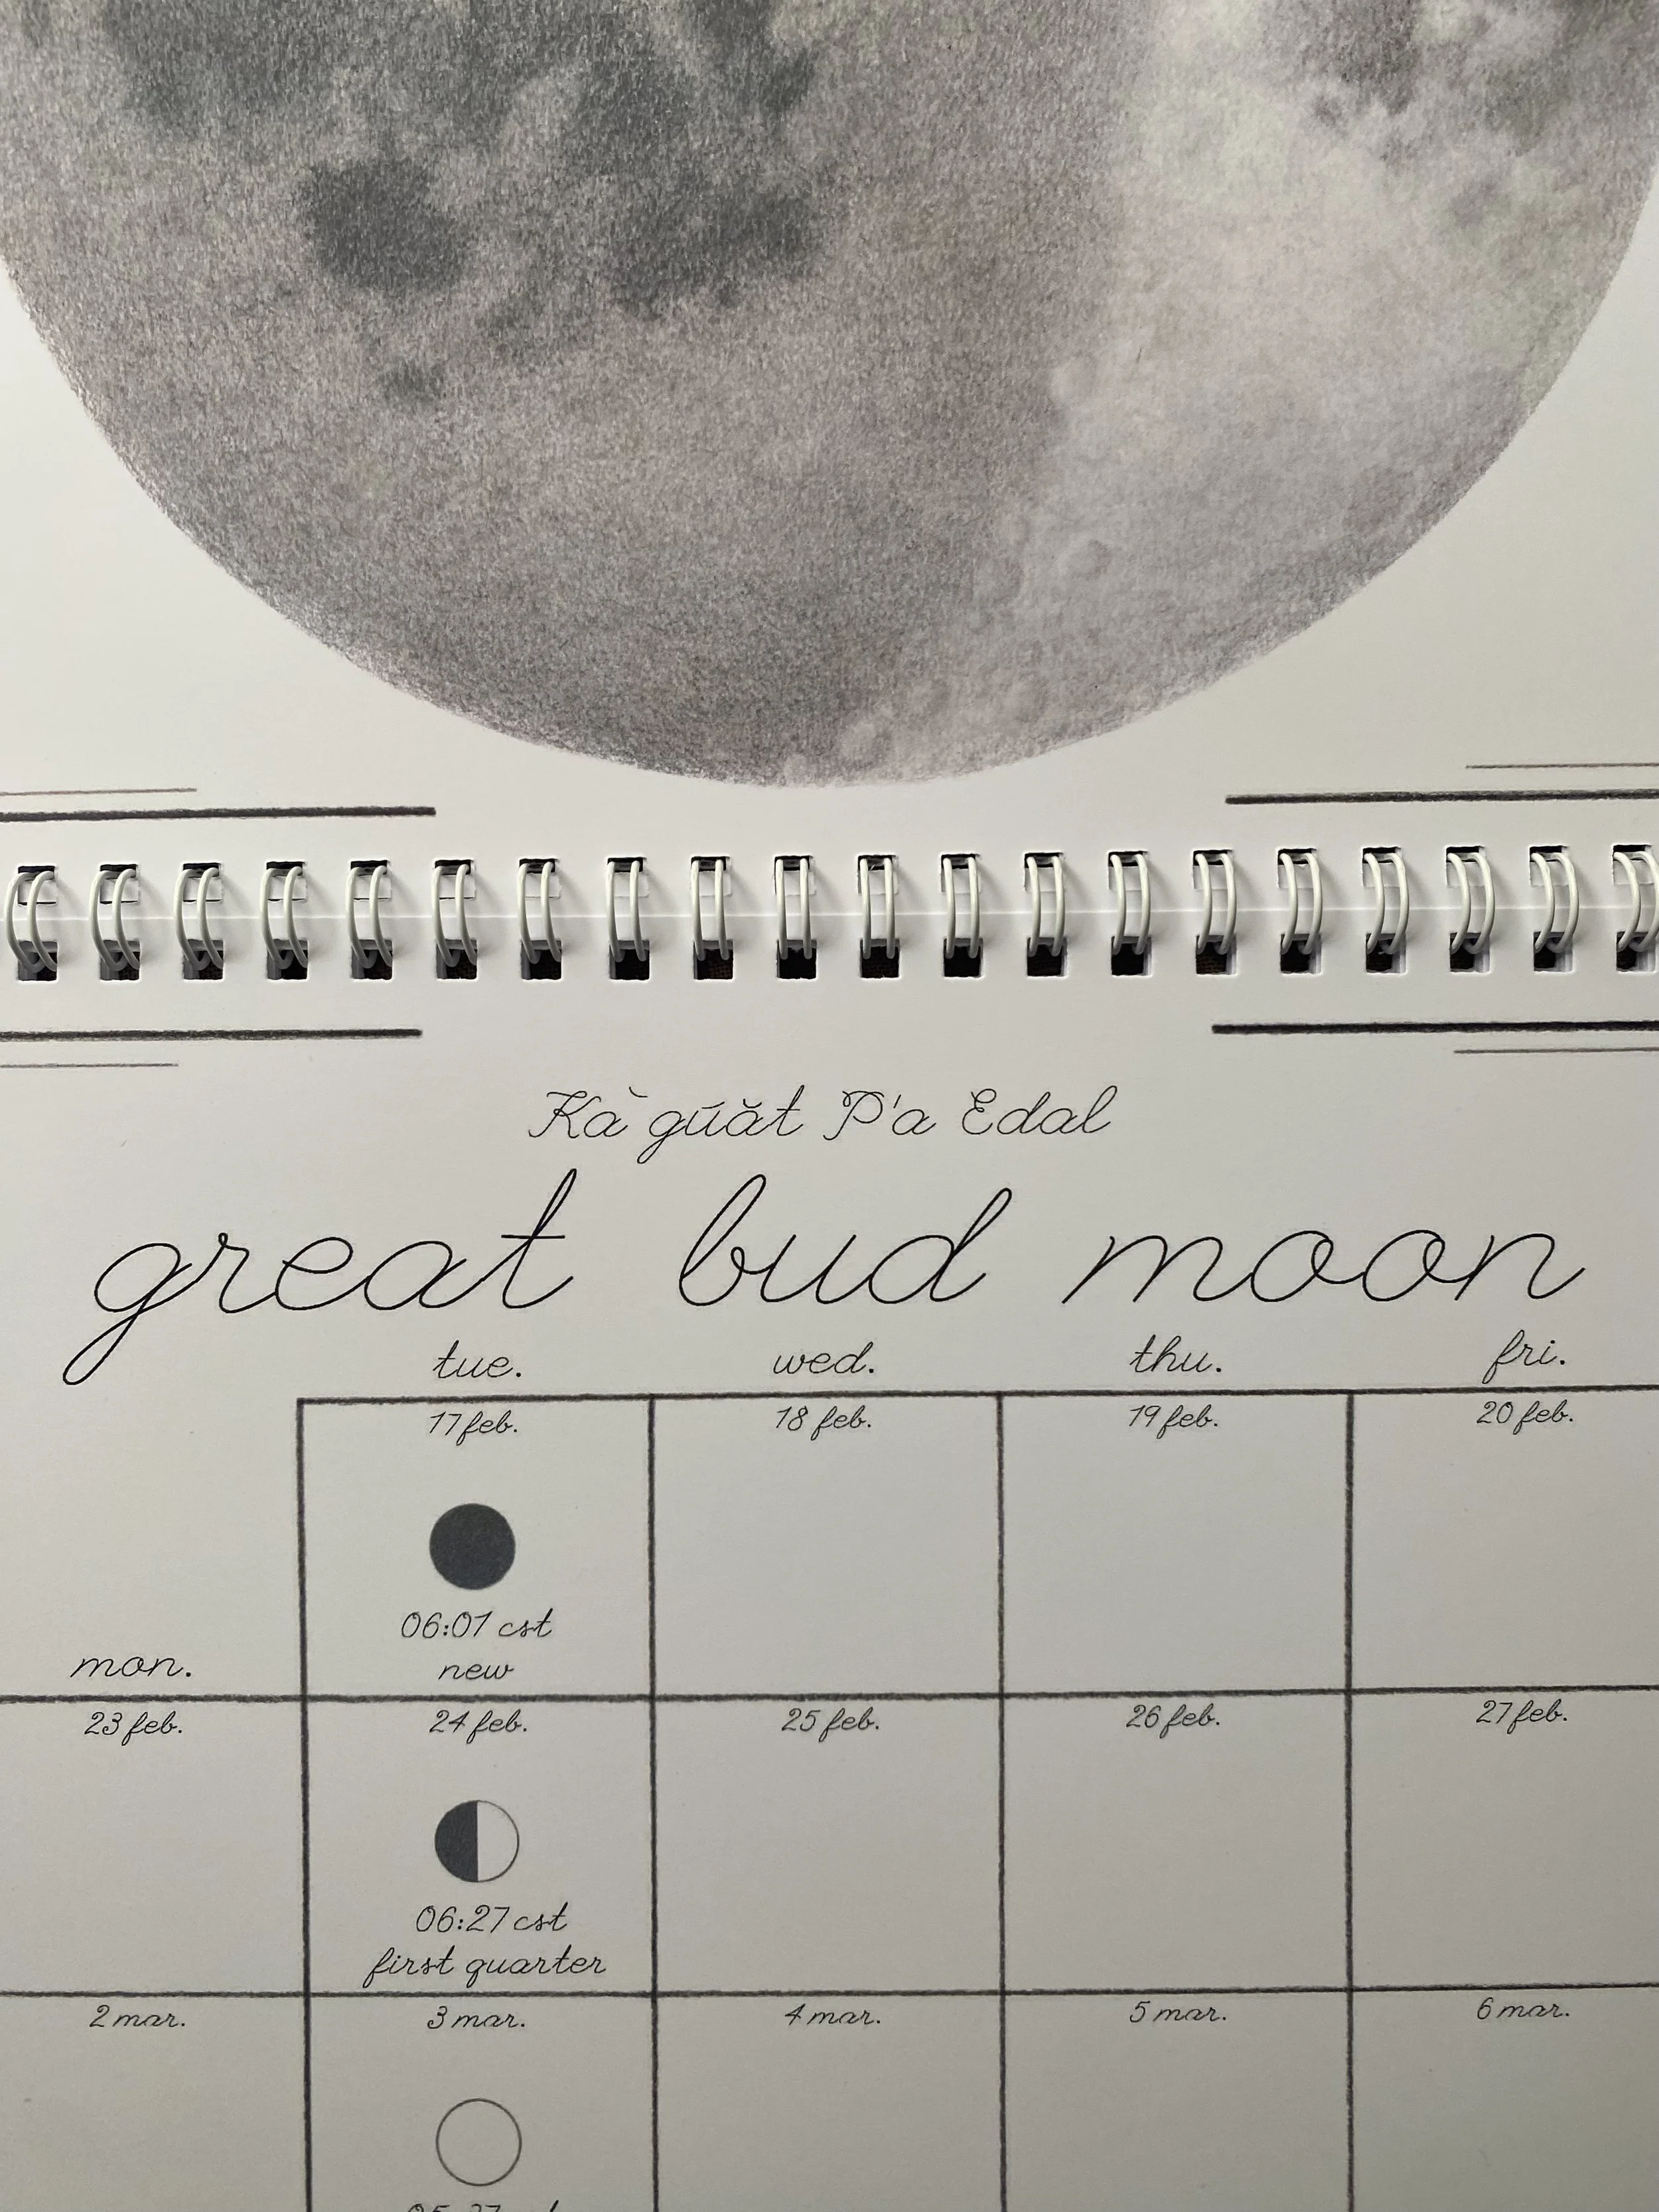 Kà gúăt P'a Edal
great bud moon
tue. wed. thu. fri.
17 feb. 18 feb. 19 feb. 20 feb.
06:01 cst
new
mon.
23 feb. 24 feb. 25 feb. 26 feb. 27 feb.
06:27 cst
first quarter
2 mar. 3 mar. 4 mar. 5 mar. 6 mar.